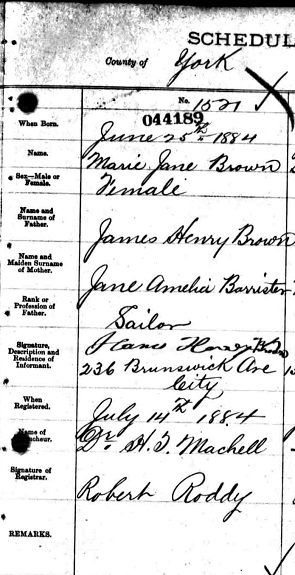 SCHEDUL
County of York
No. 1521
044189
When Born. June 25th 1884
Name. Marie Jane Brown
Sex—Male or Female. Female
Name and Surname of Father. James Henry Brown
Name and Maiden Surname of Mother. Jane Amelia Barrister
Rank or Profession of Father. Sailor
Signature, Description and Residence of Informant.
236 Brunswick Ave
City
When Registered. July 14th 1884
Name of Dr. H. T. Machell
Signature of Registrar. Robert Roddy
REMARKS.